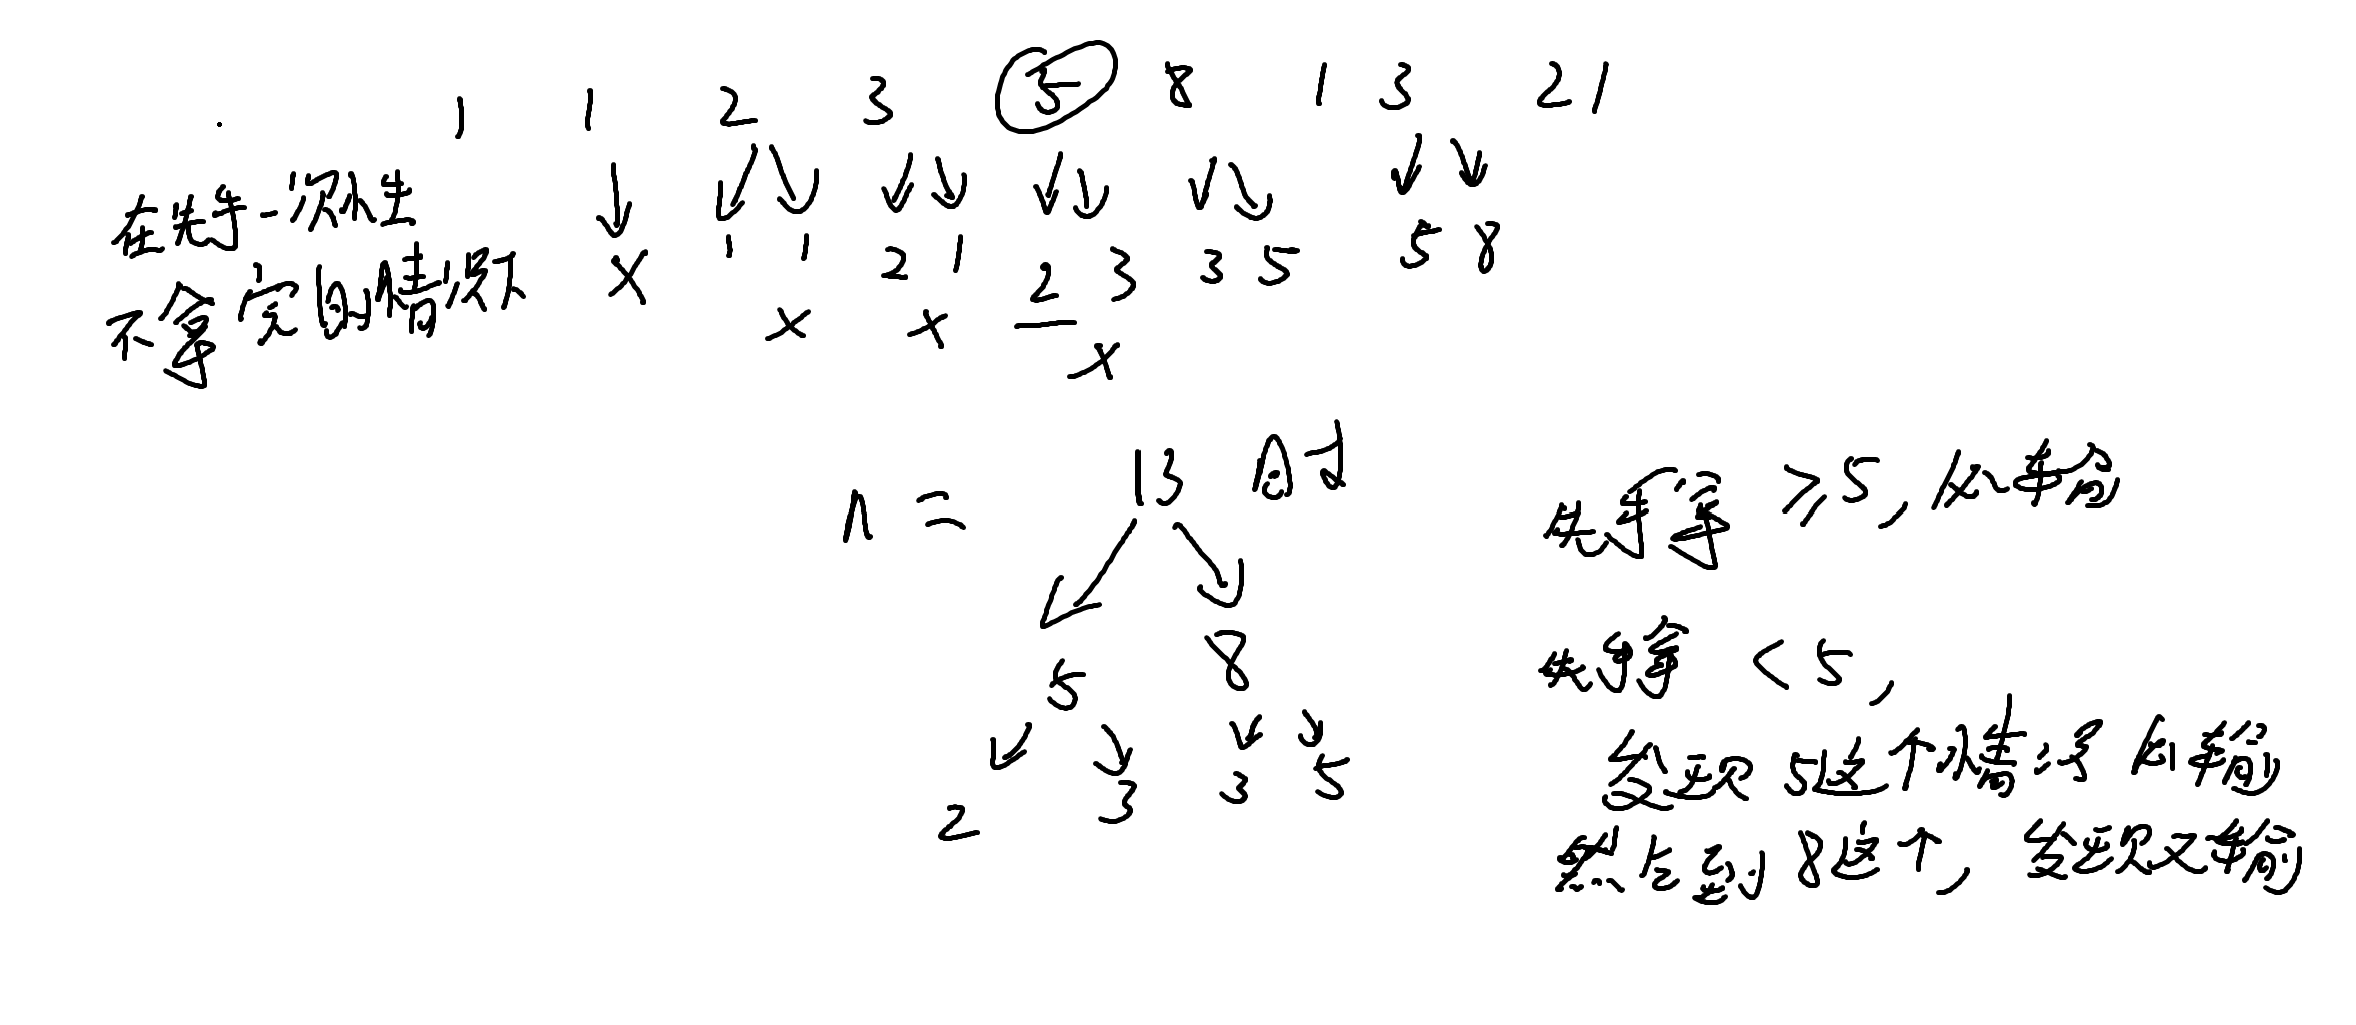 1 1 2 3 5 8 13 21
在先手一次性
不拿完的情况下
x 1 1 2 1 2 3 3 5 5 8
x x x
n = 13 时
5 8
2 3 3 5
先手拿 ≥5, 必输
先手拿 <5,
发现 5这个情况 必输
然后到 8这个, 发现又输